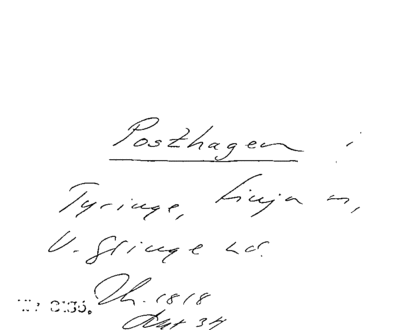 Posthagen i
Tyringe, Finja sn,
V. Göinge hd.
Th. 1818
Akt 34